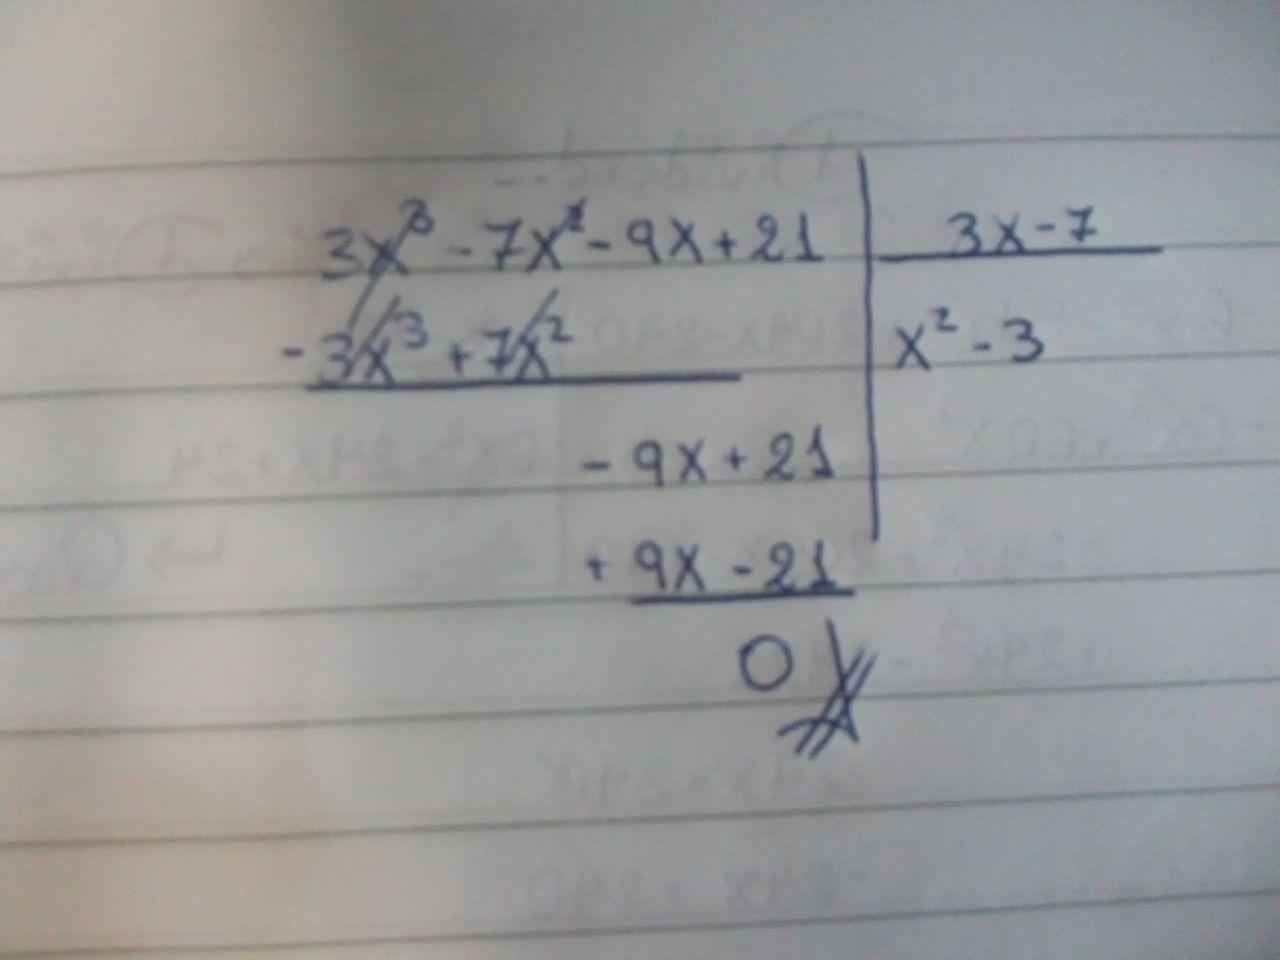 3x³ - 7x² - 9x + 21 | 3x - 7
- 3x³ + 7x² x² - 3
- 9x + 21
+ 9x - 21
0